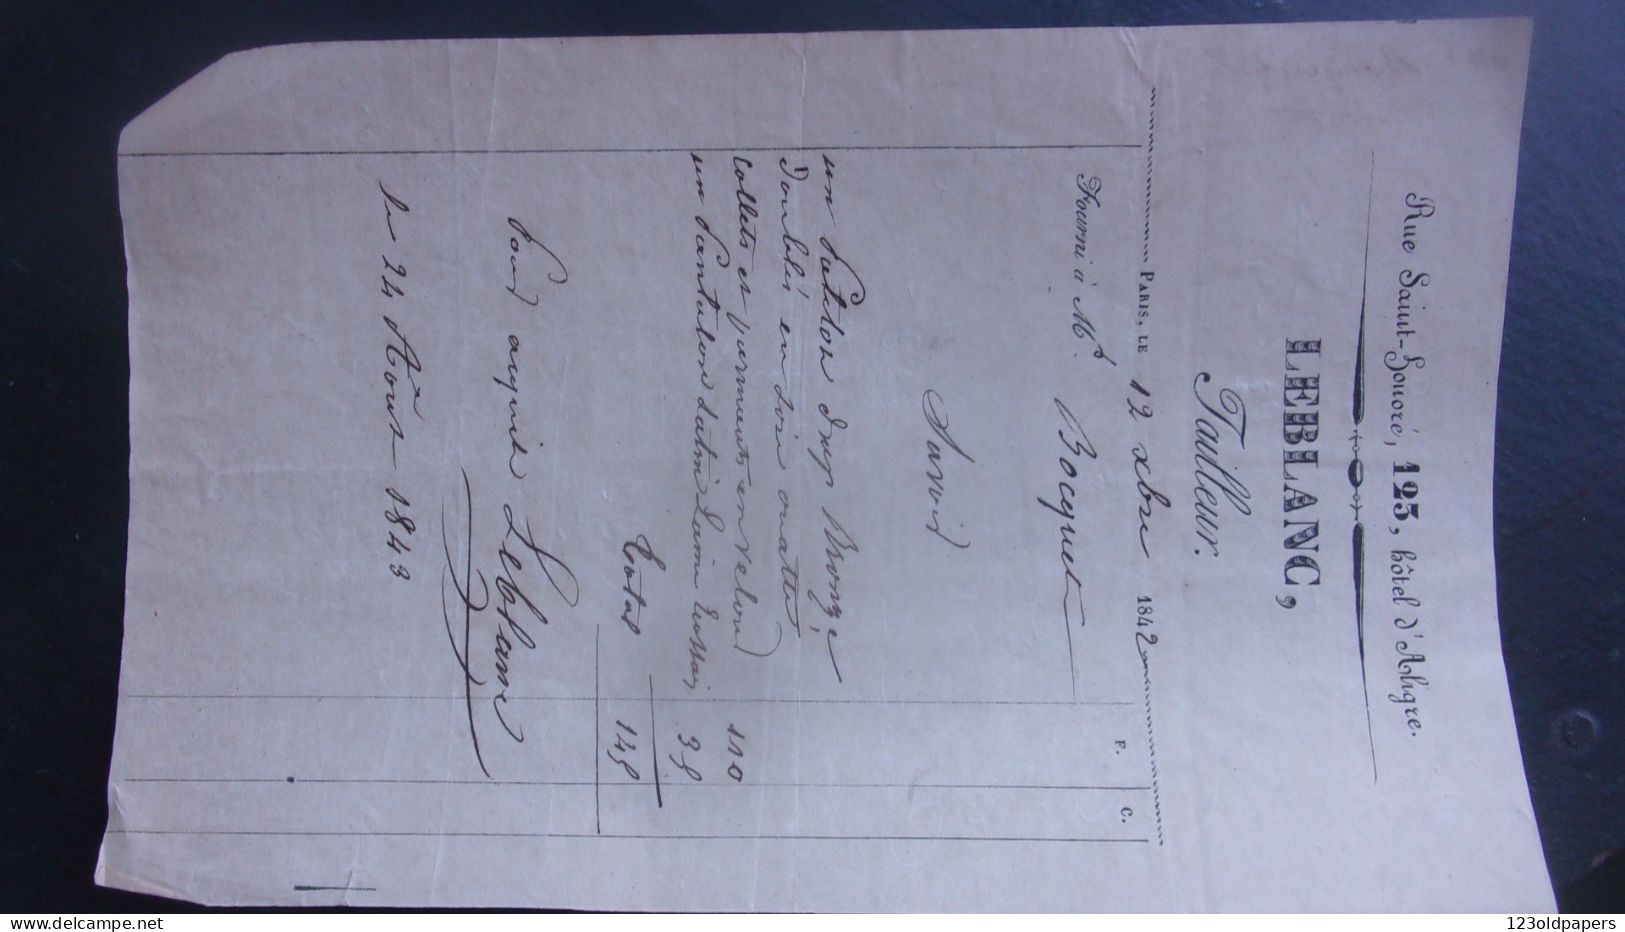 Rue Saint-Honoré, 125, hôtel d'Aligre.
LEBLANC,
Tailleur.
PARIS, LE 12 xbre 1842
Fourni à Mr. Bocquet
Savoir
F. C.
un Paletot drap Bronze
Doublé en soie ouatté
Collets et parements en velour 110
un Pantalon satin Laine Russe 35
Total 145
Pour acquit Leblanc
Le 24 Aout 1843
123oldpapers
delcampe.net